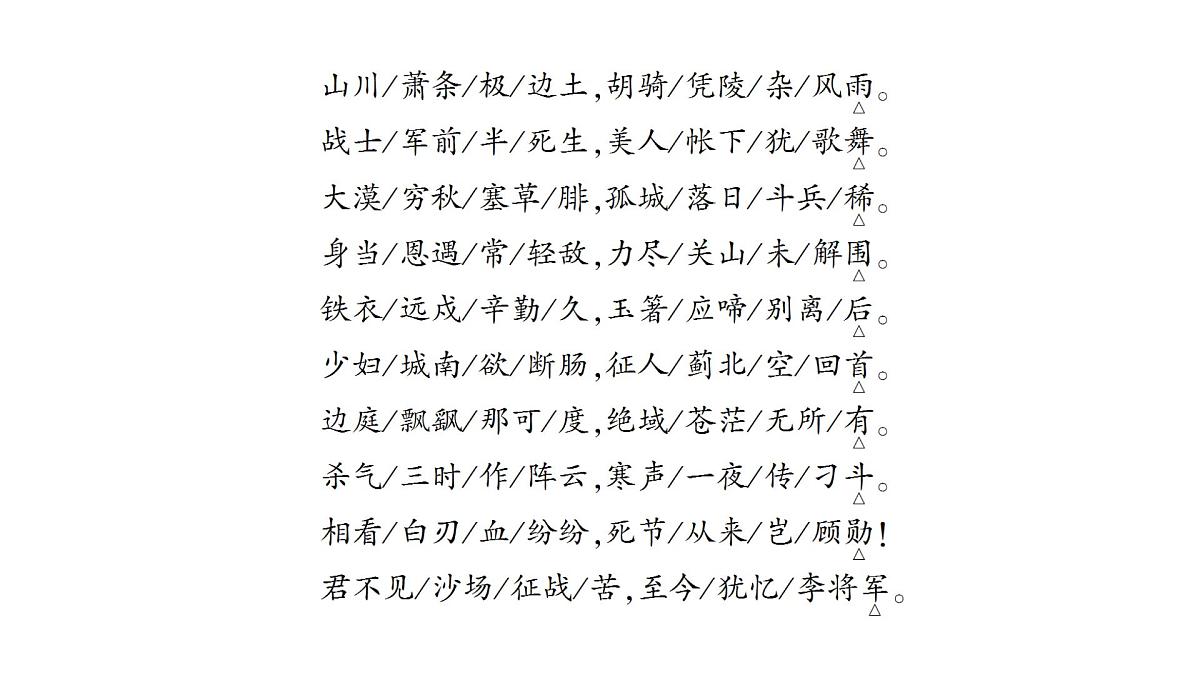 山川/萧条/极/边土,胡骑/凭陵/杂/风雨。
△
战士/军前/半/死生,美人/帐下/犹/歌舞。
△
大漠/穷秋/塞草/腓,孤城/落日/斗兵/稀。
△
身当/恩遇/常/轻敌,力尽/关山/未/解围。
△
铁衣/远戍/辛勤/久,玉箸/应啼/别离/后。
△
少妇/城南/欲/断肠,征人/蓟北/空/回首。
△
边庭/飘飖/那可/度,绝域/苍茫/无所/有。
△
杀气/三时/作/阵云,寒声/一夜/传/刁斗。
△
相看/白刃/血/纷纷,死节/从来/岂/顾勋!
△
君不见/沙场/征战/苦,至今/犹忆/李将军。
△